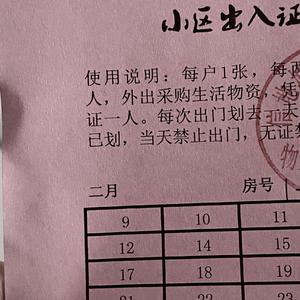 小区出入证
使用说明：每户1张，每两
人，外出采购生活物资，凭
证一人。每次出门划去一天
已划，当天禁止出门，无证禁
二月 房号
9 10 11
12 14 15
17 18 19
21 22 23
物